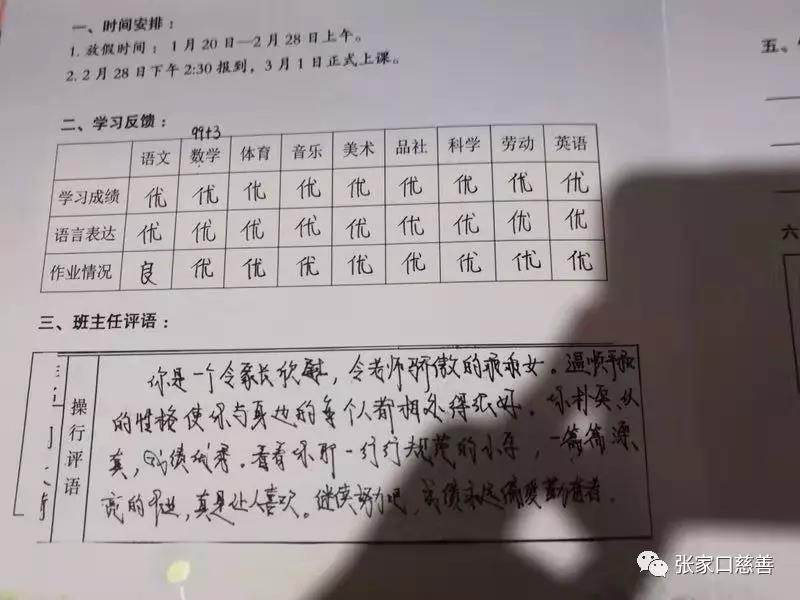 一、时间安排：
1. 放假时间：1月20日—2月28日上午。
2. 2月28日下午2:30报到，3月1日正式上课。
五、
二、学习反馈：
99+3
语文 数学 体育 音乐 美术 品社 科学 劳动 英语
学习成绩 优 优 优 优 优 优 优 优 优
语言表达 优 优 优 优 优 优 优 优 优
作业情况 良 优 优 优 优 优 优 优 优
六
三、班主任评语：
操行评语
你是一个令家长欣慰，令老师骄傲的乖乖女。温顺平和
的性格使你与身边的每个人都相处得很好。你朴实、认
真，成绩优秀。看着你那一行行规范的小字，一篇篇漂
亮的书写，真是让人喜欢。继续努力吧，成绩永远偏爱勤奋者。
张家口慈善